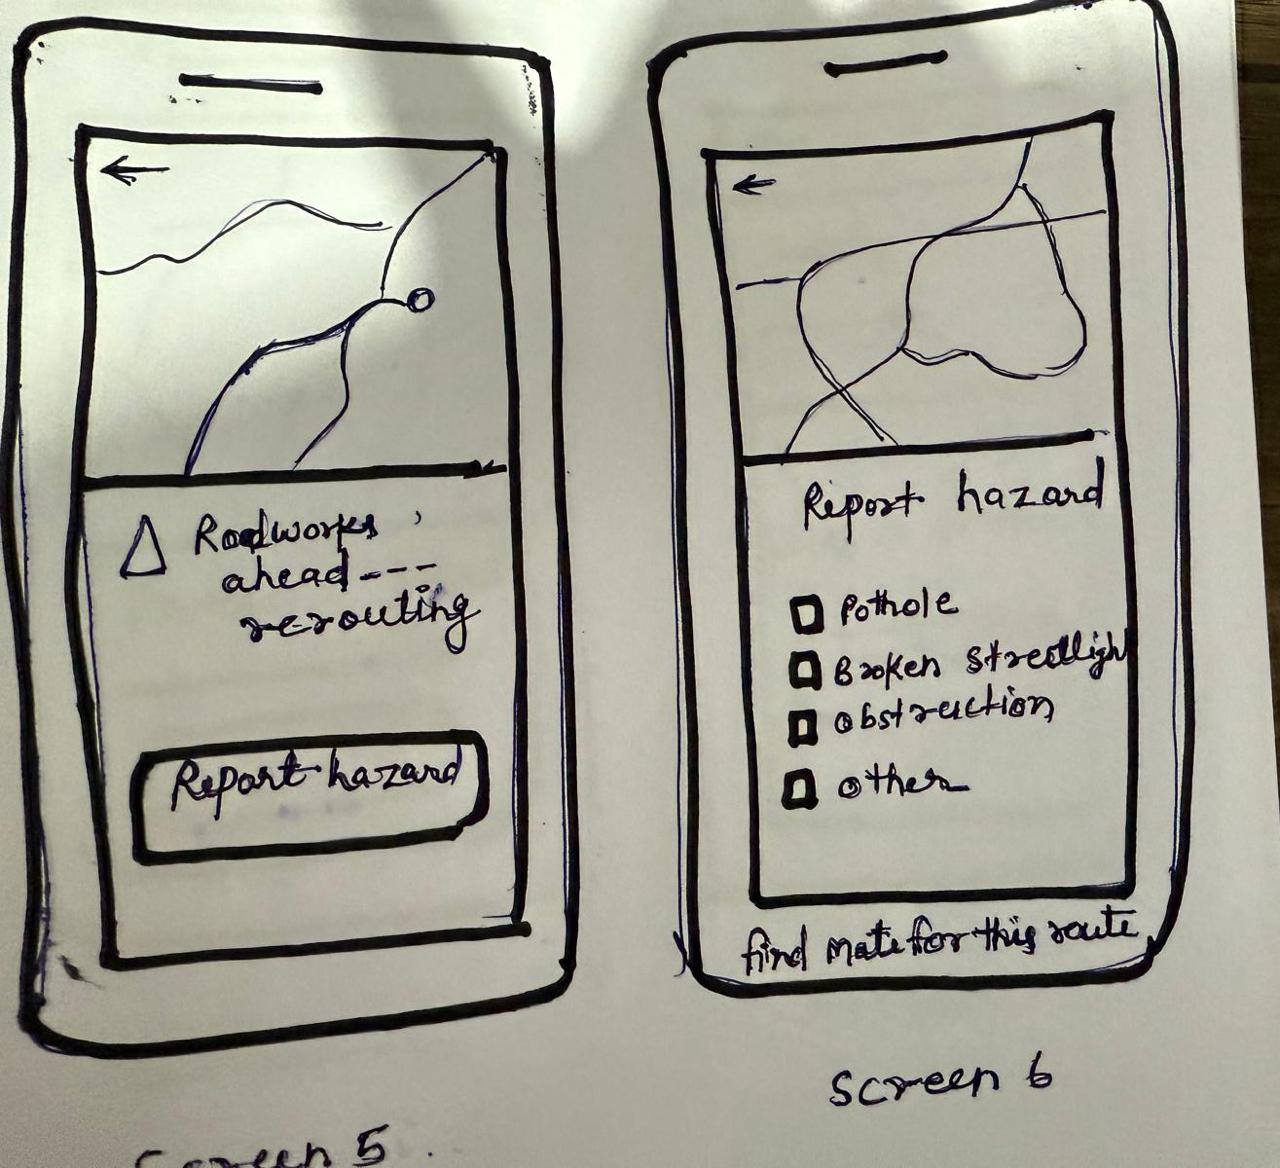 Roadworks
ahead---
rerouting
Report hazard
Screen 5.
Report hazard
Pothole
Broken Streetligh
obstruction
other
find mate for this route
Screen 6